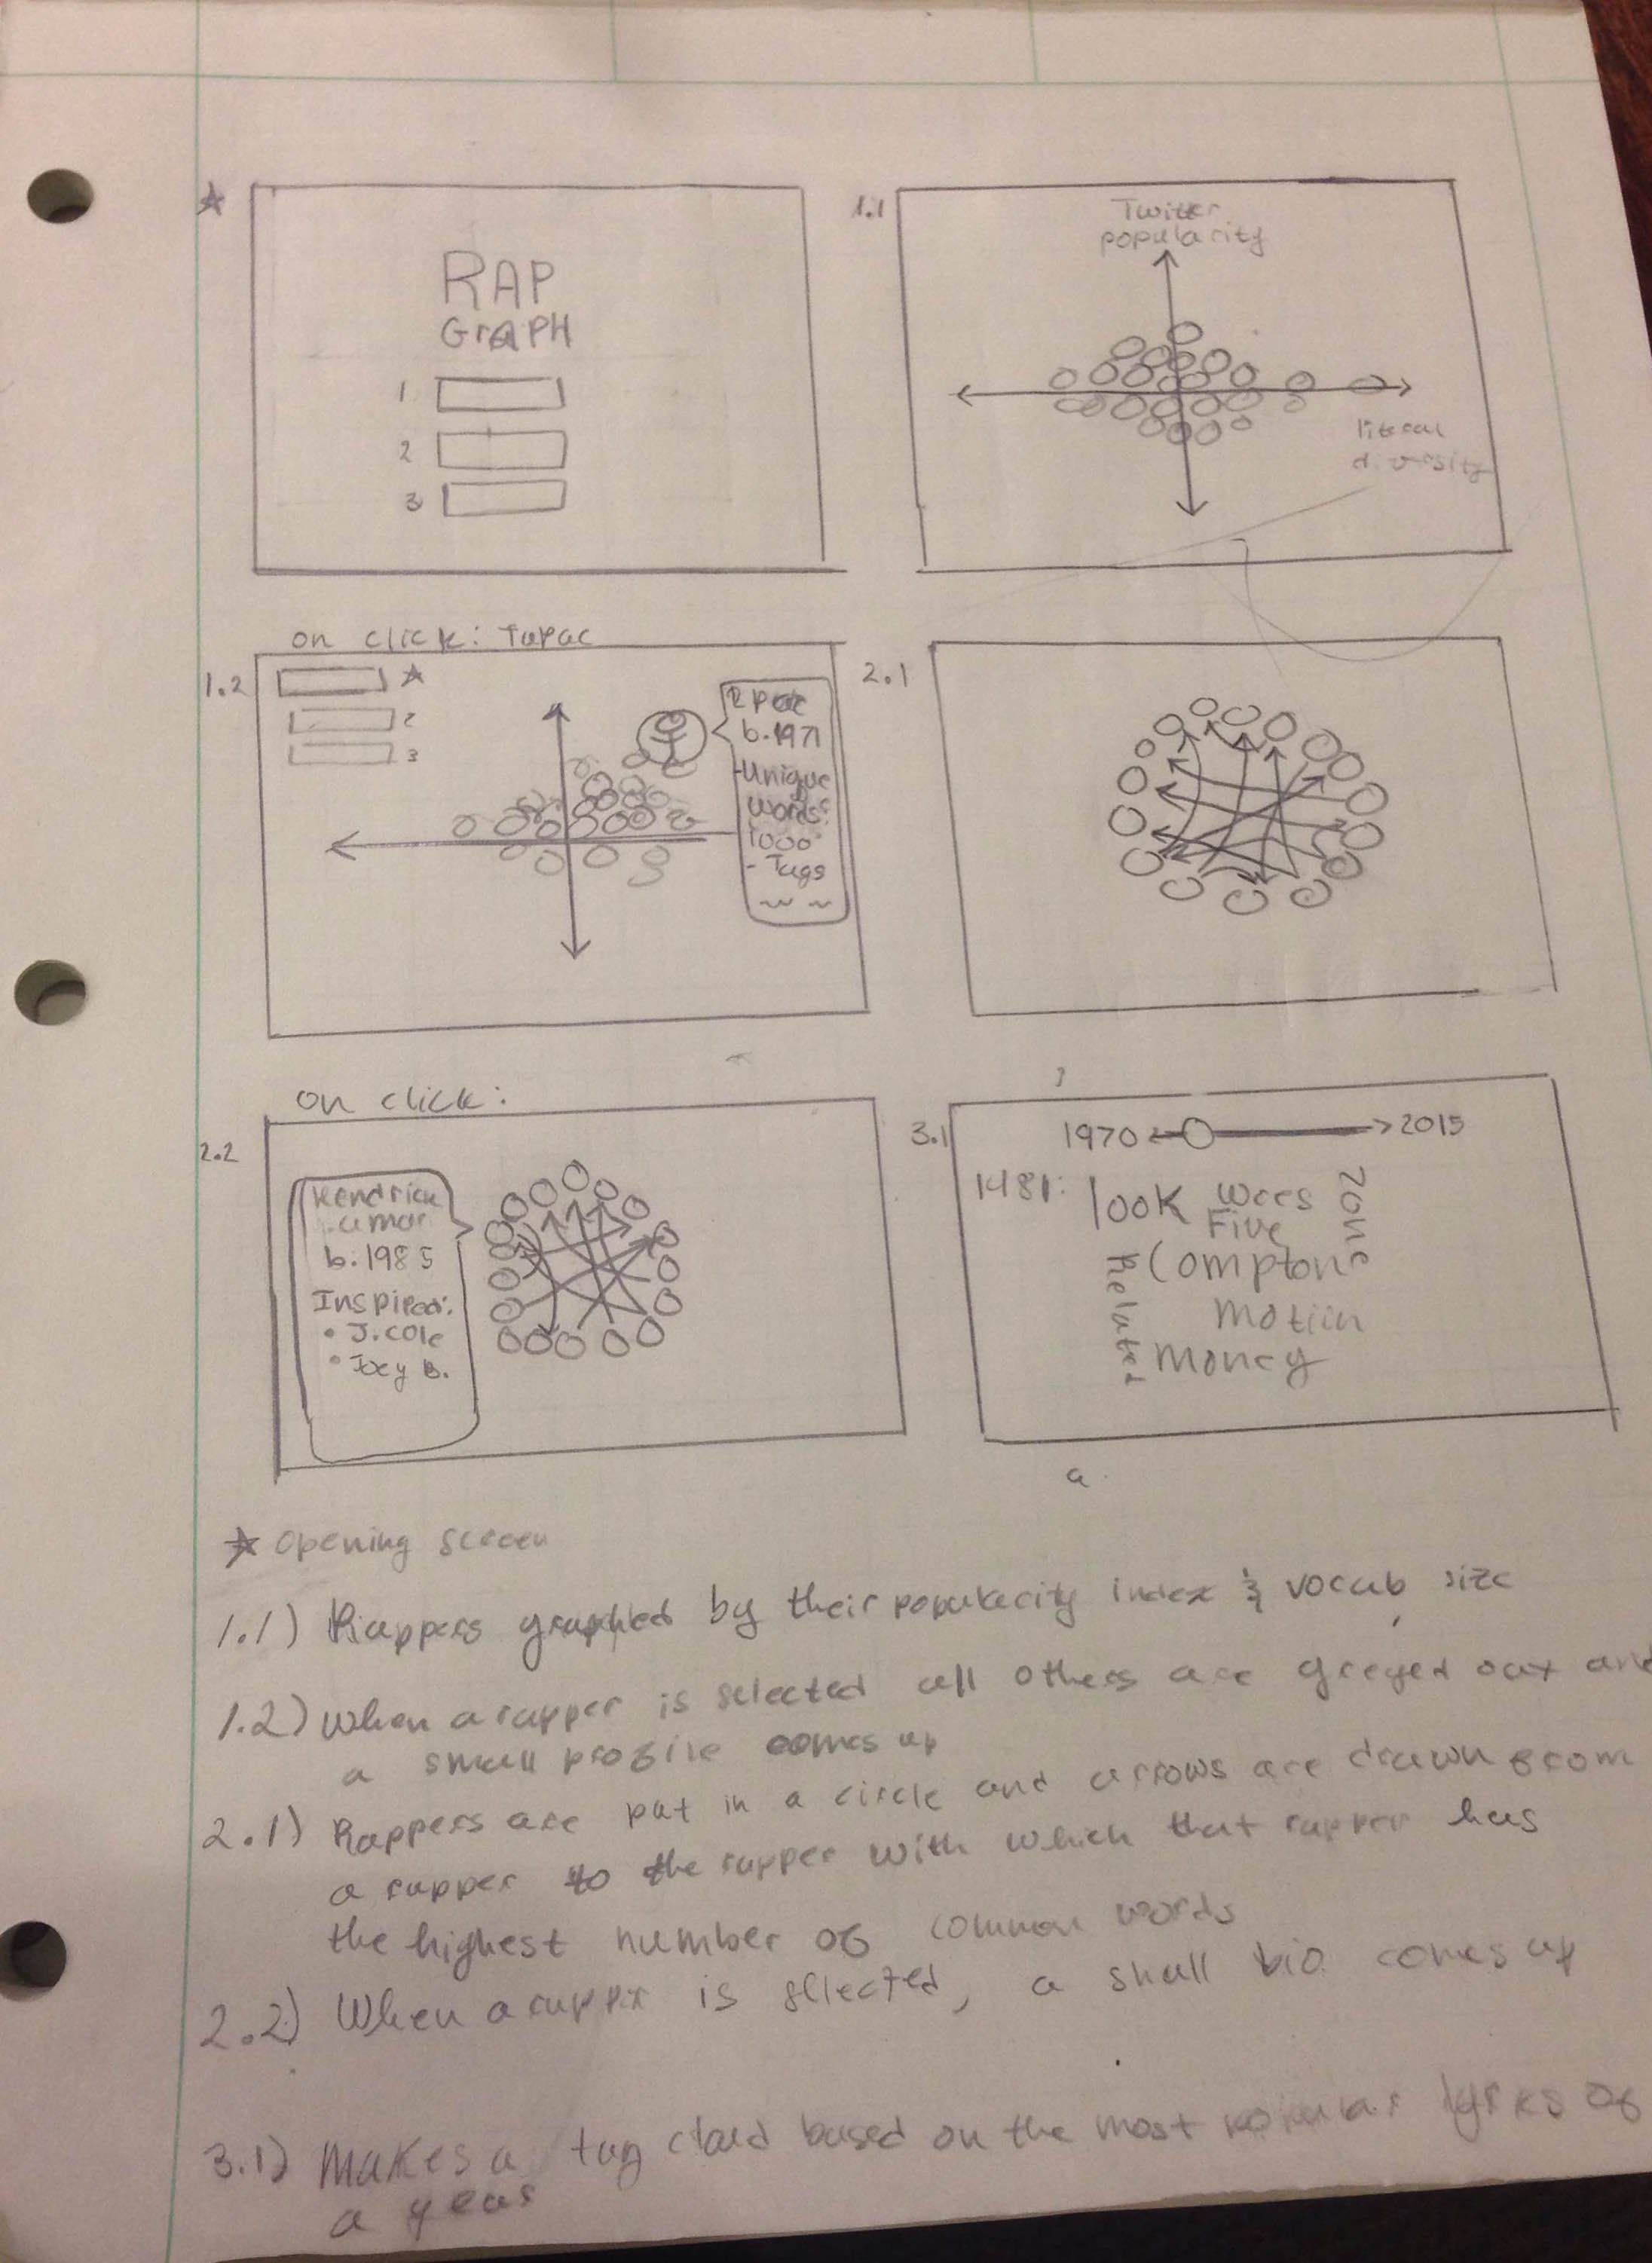 ★
RAP
GraPH
1
2
3
1.1
Twitter
popularity
literal
diversity
on click: Tupac
1.2
★
2
3
2pac
b.1971
-Unique
Words:
1000
- Tags
2.1
on click:
2.2
Kendrick
Lamar
b.1985
Inspired:
• J.Cole
• Joey B.
3.1
1970
2015
1981:
look
Five
zone
Compton
Related
motion
money
★ opening screen
1.1) Rappers graphed by their popularity index & vocab size
1.2) when a rapper is selected all others are greyed out and
a small profile comes up
2.1) Rappers are put in a circle and arrows are drawn from
a rapper to the rapper with which that rapper has
the highest number of common words
2.2) When a rapper is sllected, a small bio comes up
3.1) Makes a tag cloud based on the most popular lyrics of
a year